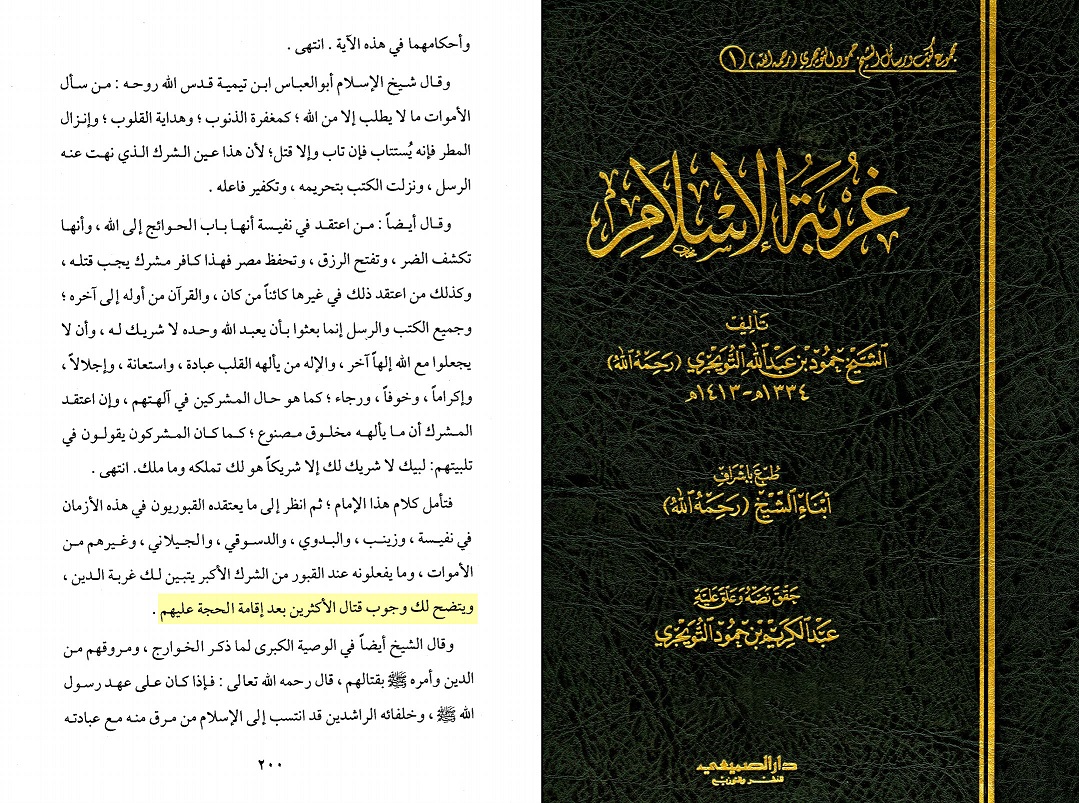 وأحكامهما في هذه الآية . انتهى .
وقال شيخ الإسلام أبوالعباس ابن تيمية قدس الله روحه : من سأل
الأموات ما لا يطلب إلا من الله ؛ كمغفرة الذنوب ؛ وهداية القلوب ؛ وإنزال
المطر فإنه يُستتاب فإن تاب وإلا قتل؛ لأن هذا عين الشرك الذي نهت عنه
الرسل ، ونزلت الكتب بتحريمه ، وتكفير فاعله .
وقال أيضاً : من اعتقد في نفيسة أنها باب الحوائج إلى الله ، وأنها
تكشف الضر ، وتفتح الرزق ، وتحفظ مصر فهذا كافر مشرك يجب قتله ،
وكذلك من اعتقد ذلك في غيرها كائناً من كان ، والقرآن من أوله إلى آخره ؛
وجميع الكتب والرسل إنما بعثوا بأن يعبد الله وحده لا شريك له ، وأن لا
يجعلوا مع الله إلهاً آخر ، والإله من يألهه القلب عبادة ، واستعانة ، وإجلالاً ،
وإكراماً ، وخوفاً ، ورجاء ؛ كما هو حال المشركين في آلهتهم ، وإن اعتقد
المشرك أن ما يألهه مخلوق مصنوع ؛ كما كان المشركون يقولون في
تلبيتهم: لبيك لا شريك لك إلا شريكاً هو لك تملكه وما ملك. انتهى .
فتأمل كلام هذا الإمام ؛ ثم انظر إلى ما يعتقده القبوريون في هذه الأزمان
في نفيسة ، وزينب ، والبدوي ، والدسوقي ، والجيلاني ، وغيرهم من
الأموات ، وما يفعلونه عند القبور من الشرك الأكبر يتبين لك غربة الدين ،
ويتضح لك وجوب قتال الأكثرين بعد إقامة الحجة عليهم .
وقال الشيخ أيضاً في الوصية الكبرى لما ذكر الخوارج ، ومروقهم من
الدين وأمره ﷺ بقتالهم ، قال رحمه الله تعالى : فإذا كان على عهد رسول
الله ﷺ ، وخلفائه الراشدين قد انتسب إلى الإسلام من مرق منه مع عبادته
٢٠٠
مجموع كتب ورسائل الشيخ حمود التويجري (رحمه الله) (١)
غُرْبَةُ الإِسْلَامِ
تأليف
الشيخ حمود بن عبدالله التويجري (رحمه الله)
١٣٣٤هـ-١٤١٣هـ
طبع بإشراف
أبناء الشيخ (رحمه الله)
حقق نصه وعلق عليه
عبدالكريم بن حمود التويجري
دار الصميعي
للنشر والتوزيع